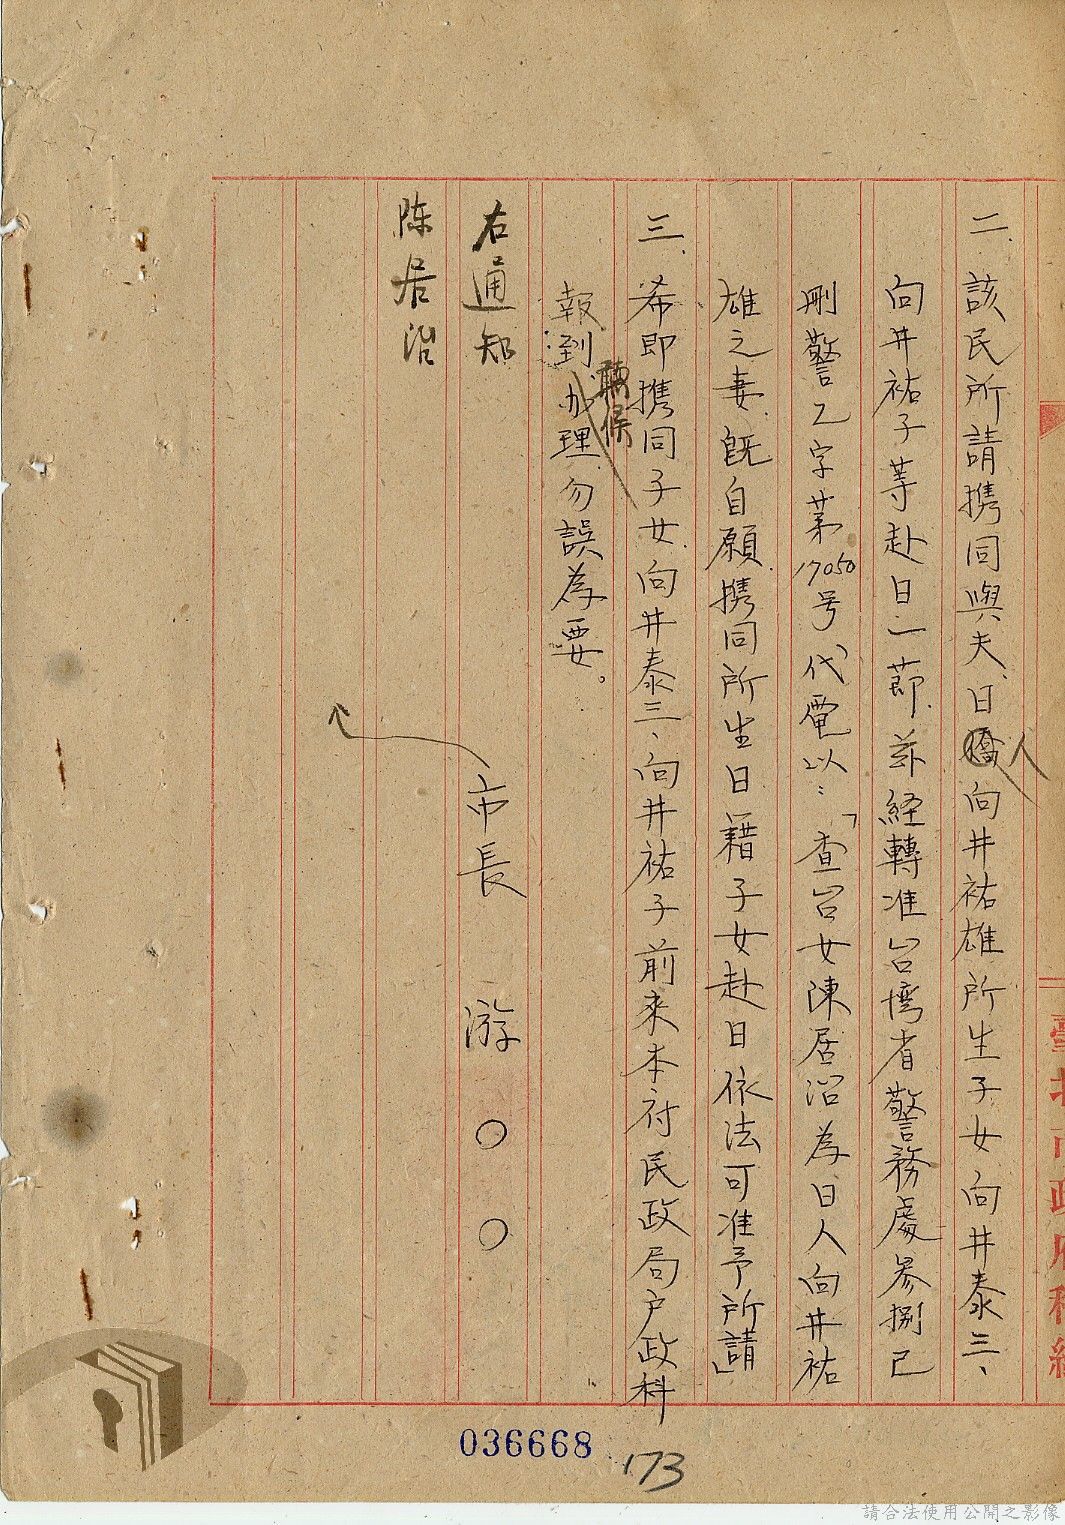 二、該民所請携同與夫、日僑人向井祐雄所生子女向井泰三、
向井祐子等赴日一節、茲経轉准台湾省警務處參捌已
刪警乙字第17050号代電以：「查台女陳居治為日人向井祐
雄之妻、既自願携同所生日籍子女赴日依法可准予所請」
三、希即携同子女向井泰三、向井祐子前來本府民政局户政科
報到聽候办理勿誤為要。
右通知
陈居治
市長 游○○
臺北市政府稿紙
036668
173
請合法使用公開之影像